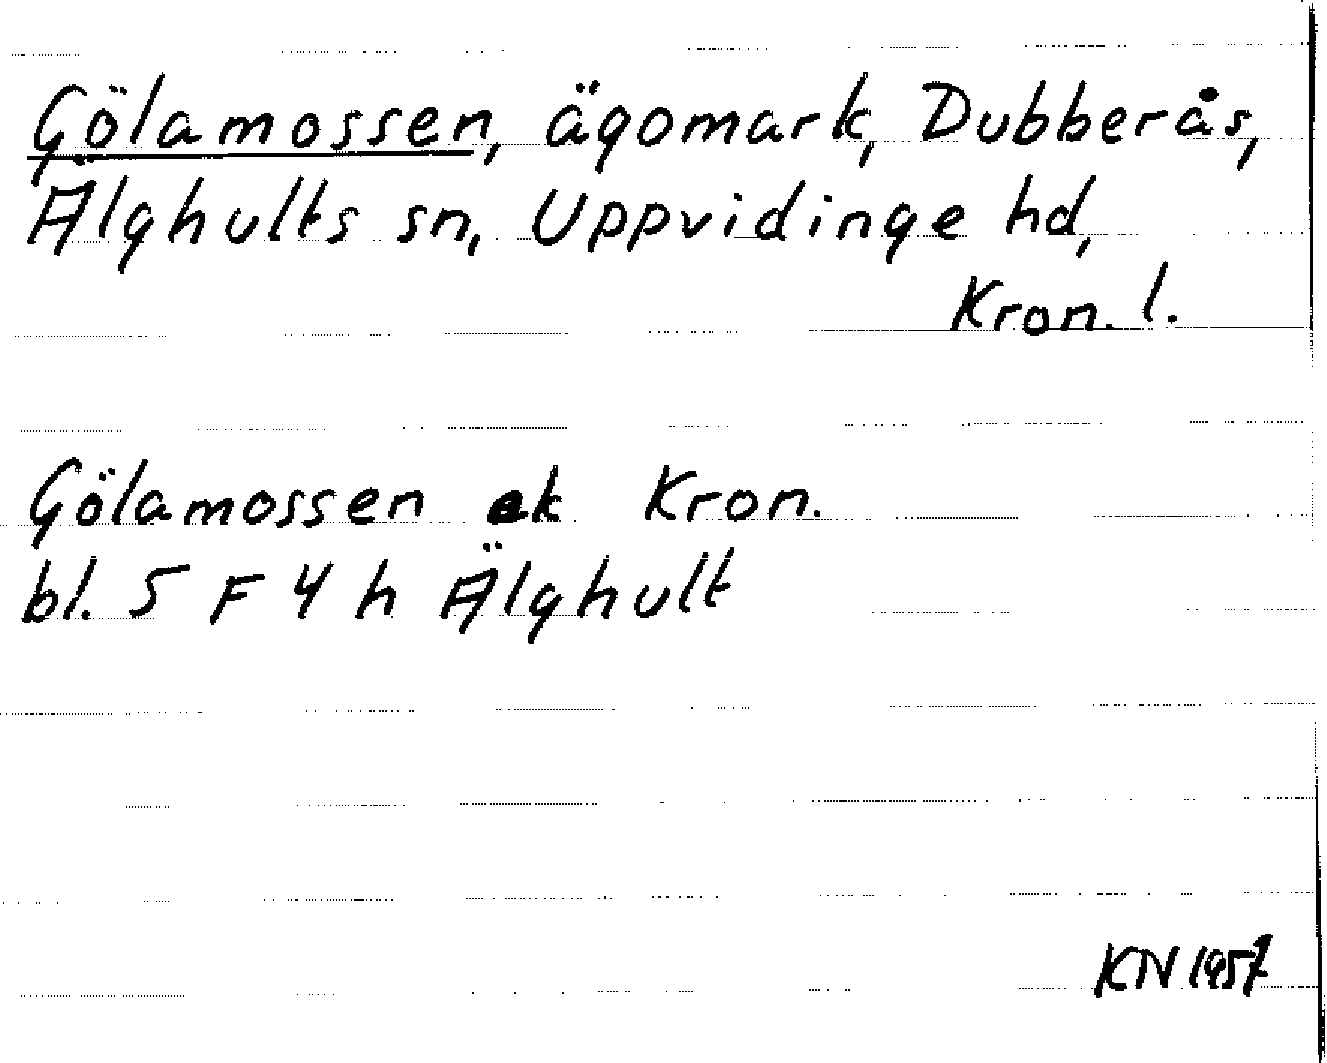 Gölamossen, ägomark, Dubberås,
Älghults sn, Uppvidinge hd,
Kron. l.
Gölamossen ek Kron.
bl. 5 F 4 h Älghult
KN 1957